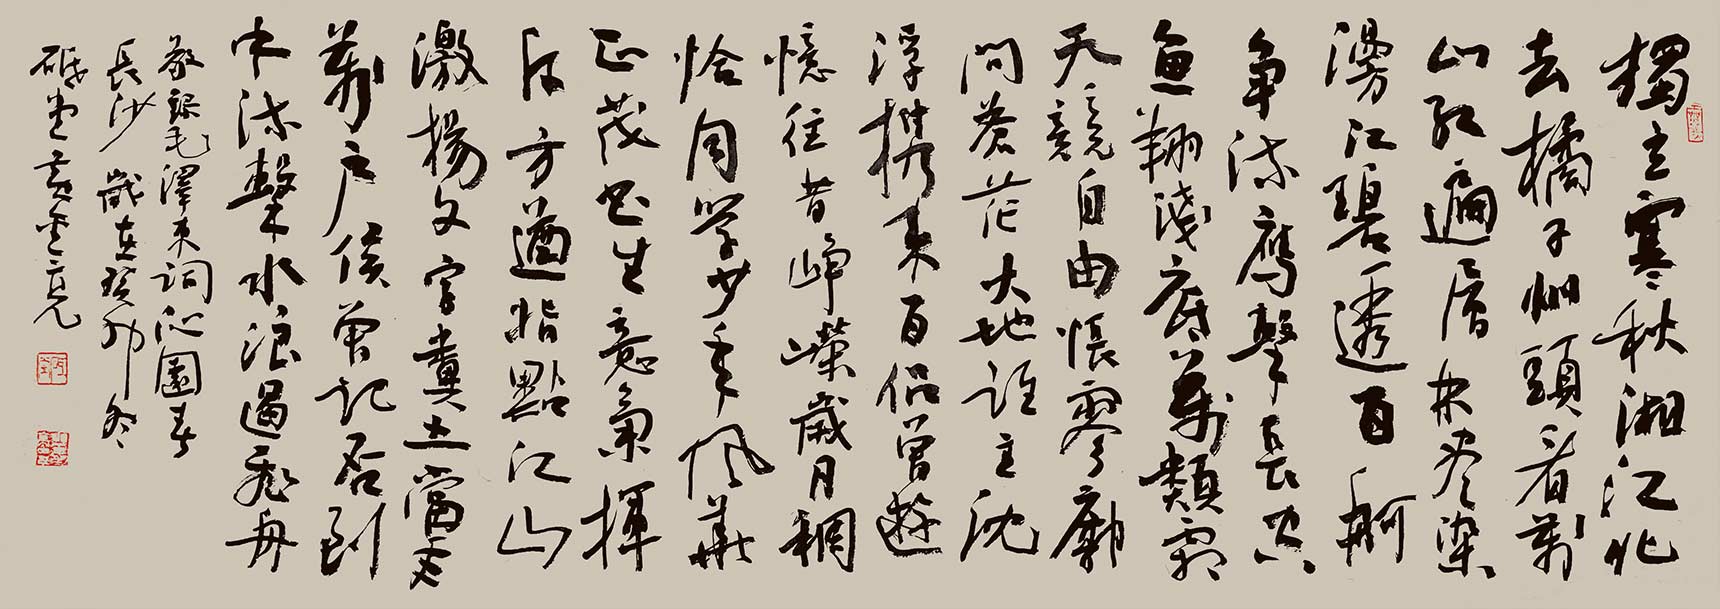 獨立寒秋湘江北
去橘子洲頭看萬
山紅遍層林盡染
漫江碧透百舸
爭流鷹擊長空
魚翔淺底萬類霜
天競自由悵寥廓
問蒼茫大地誰主沈
浮攜來百侶曾遊
憶往昔崢嶸歲月稠
恰同學少年風華
正茂書生意氣揮
斥方遒指點江山
激揚文字糞土當年
萬戶侯曾記否到
中流擊水浪遏飛舟
敬錄毛澤東詞沁園春
長沙 歲在癸卯冬
硯堂黃雲亮